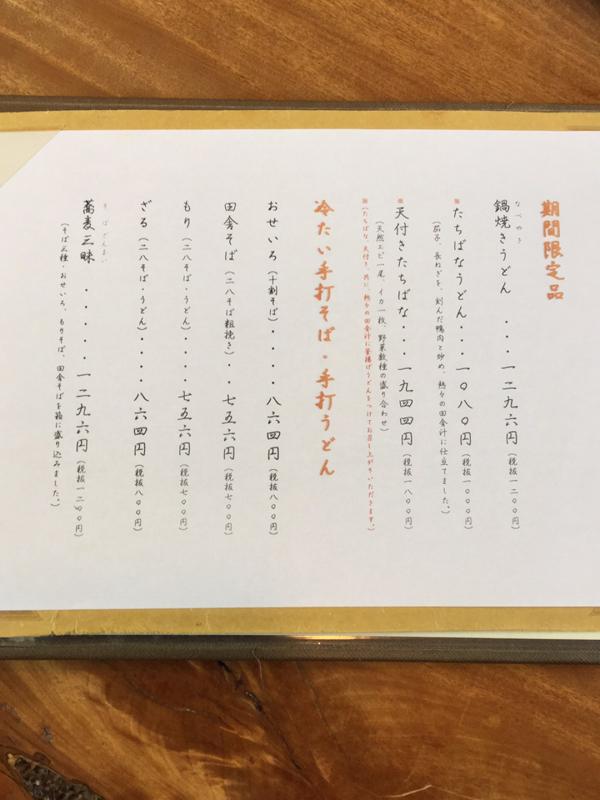 期間限定品
なべやき
鍋焼きうどん・・・一二九六円(税抜一二〇〇円)
※たちばなうどん・・・一〇八〇円(税抜一〇〇〇円)
(茄子、長ねぎを、刻んだ鴨肉と炒め、熱々の田舎汁に仕立てました。)
※天付きたちばな・・・一九四四円(税抜一八〇〇円)
(天然エビ一尾、イカ一枚、野菜数種の盛り合わせ)
※(たちばな、天付き、共に、熱々の田舎汁に釜揚げうどんをつけてお召し上がりいただきます。)
冷たい手打そば・手打うどん
おせいろ(十割そば)・・・・八六四円(税抜八〇〇円)
田舎そば(二八そば粗挽き)・・七五六円(税抜七〇〇円)
もり(二八そば・うどん)・・・・七五六円(税抜七〇〇円)
ざる(二八そば・うどん)・・・・八六四円(税抜八〇〇円)
そばざんまい
蕎麦三昧・・・・・一二九六円(税抜一二〇〇円)
(そば三種・おせいろ、もりそば、田舎そばを箱に盛り込みました。)